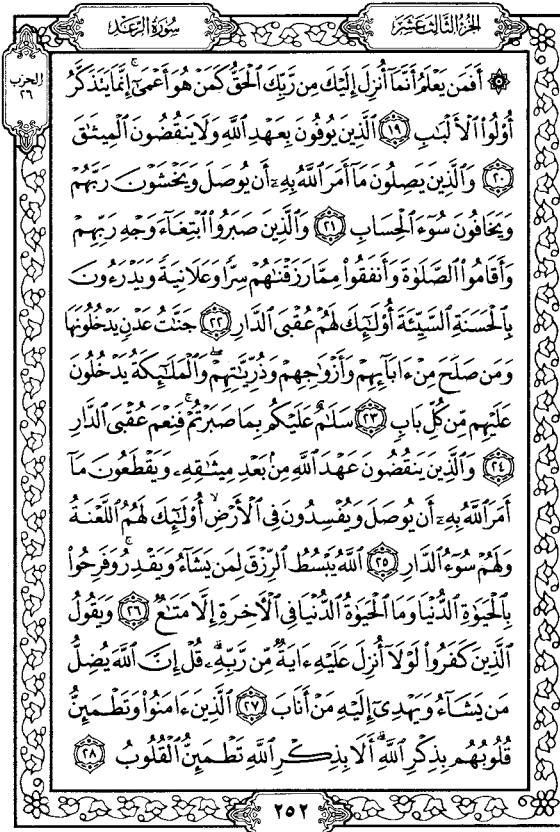 سورة الرعد
الجزء الثالث عشر
الحزب
٢٦
۞ أَفَمَن يَعْلَمُ أَنَّمَآ أُنزِلَ إِلَيْكَ مِن رَّبِّكَ ٱلْحَقُّ كَمَنْ هُوَ أَعْمَىٰٓ ۚ إِنَّمَا يَتَذَكَّرُ
أُو۟لُوا۟ ٱلْأَلْبَـٰبِ ١٩ ٱلَّذِينَ يُوفُونَ بِعَهْدِ ٱللَّهِ وَلَا يَنقُضُونَ ٱلْمِيثَـٰقَ
٢٠ وَٱلَّذِينَ يَصِلُونَ مَآ أَمَرَ ٱللَّهُ بِهِۦٓ أَن يُوصَلَ وَيَخْشَوْنَ رَبَّهُمْ
وَيَخَافُونَ سُوٓءَ ٱلْحِسَابِ ٢١ وَٱلَّذِينَ صَبَرُوا۟ ٱبْتِغَآءَ وَجْهِ رَبِّهِمْ
وَأَقَامُوا۟ ٱلصَّلَوٰةَ وَأَنفَقُوا۟ مِمَّا رَزَقْنَـٰهُمْ سِرًّا وَعَلَانِيَةً وَيَدْرَءُونَ
بِٱلْحَسَنَةِ ٱلسَّيِّئَةَ أُو۟لَـٰٓئِكَ لَهُمْ عُقْبَى ٱلدَّارِ ٢٢ جَنَّـٰتُ عَدْنٍ يَدْخُلُونَهَا
وَمَن صَلَحَ مِنْ ءَابَآئِهِمْ وَأَزْوَٰجِهِمْ وَذُرِّيَّـٰتِهِمْ ۖ وَٱلْمَلَـٰٓئِكَةُ يَدْخُلُونَ
عَلَيْهِم مِّن كُلِّ بَابٍ ٢٣ سَلَـٰمٌ عَلَيْكُم بِمَا صَبَرْتُمْ ۚ فَنِعْمَ عُقْبَى ٱلدَّارِ
٢٤ وَٱلَّذِينَ يَنقُضُونَ عَهْدَ ٱللَّهِ مِنۢ بَعْدِ مِيثَـٰقِهِۦ وَيَقْطَعُونَ مَآ
أَمَرَ ٱللَّهُ بِهِۦٓ أَن يُوصَلَ وَيُفْسِدُونَ فِى ٱلْأَرْضِ ۙ أُو۟لَـٰٓئِكَ لَهُمُ ٱللَّعْنَةُ
وَلَهُمْ سُوٓءُ ٱلدَّارِ ٢٥ ٱللَّهُ يَبْسُطُ ٱلرِّزْقَ لِمَن يَشَآءُ وَيَقْدِرُ ۚ وَفَرِحُوا۟
بِٱلْحَيَوٰةِ ٱلدُّنْيَا وَمَا ٱلْحَيَوٰةُ ٱلدُّنْيَا فِى ٱلْـَٔاخِرَةِ إِلَّا مَتَـٰعٌ ٢٦ وَيَقُولُ
ٱلَّذِينَ كَفَرُوا۟ لَوْلَآ أُنزِلَ عَلَيْهِ ءَايَةٌ مِّن رَّبِّهِۦ ۗ قُلْ إِنَّ ٱللَّهَ يُضِلُّ
مَن يَشَآءُ وَيَهْدِىٓ إِلَيْهِ مَنْ أَنَابَ ٢٧ ٱلَّذِينَ ءَامَنُوا۟ وَتَطْمَئِنُّ
قُلُوبُهُم بِذِكْرِ ٱللَّهِ ۗ أَلَا بِذِكْرِ ٱللَّهِ تَطْمَئِنُّ ٱلْقُلُوبُ ٢٨
٢٥٢